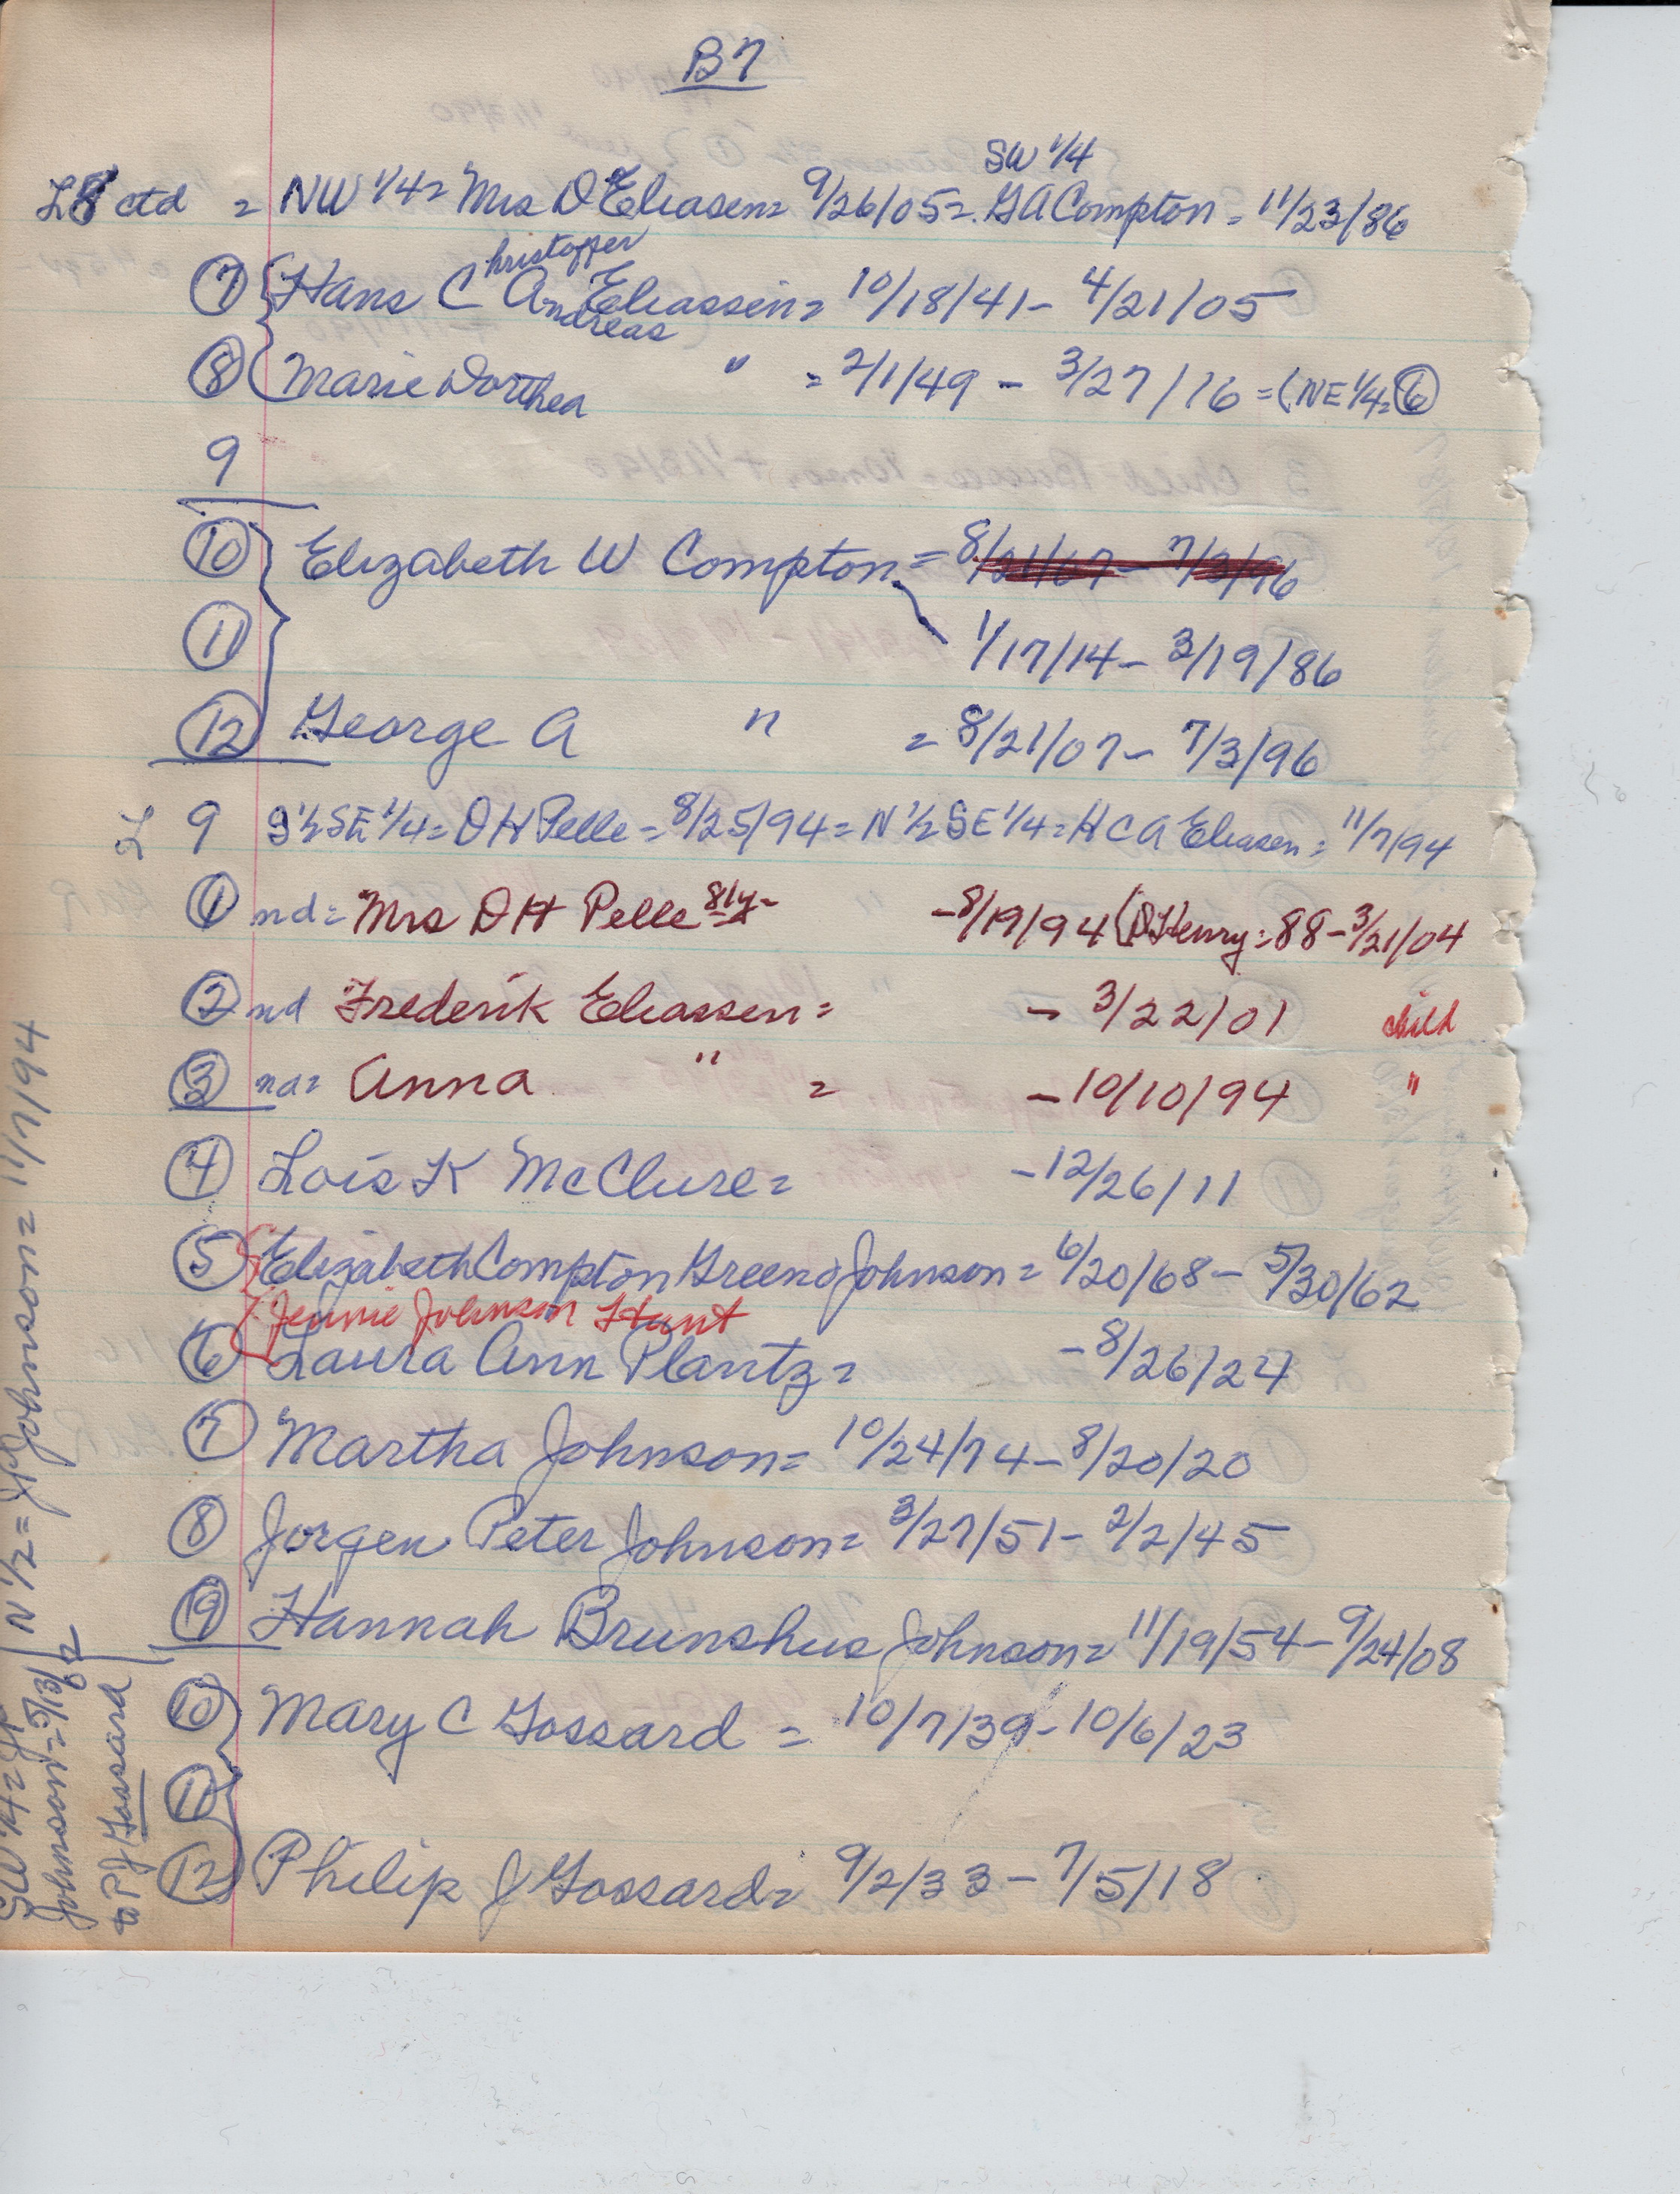 B7
SW 1/4
L8 ctd = NW 1/4 = Mrs D Eliasen = 9/26/05 = GA Compton = 11/23/86
hristoffer
7 Hans C A Eliassen = 10/18/41 - 4/21/05
ndreas
8 Marie Dorthea " = 2/1/49 - 3/27/16 = (NE 1/4 = 6
9
10 Elizabeth W Compton = 8/21/67 - 7/3/96
11 1/17/14 - 3/19/86
12 George A " = 8/21/07 - 7/3/96
L 9 S 1/2 SE 1/4 = D H Pelle = 8/25/94 = N 1/2 SE 1/4 = H C A Eliasen = 11/7/94
1 nd = Mrs D H Pelle 81y - - 8/19/94 (D Henry = 88 - 3/21/04
2 nd Frederik Eliassen = - 3/22/01 child
3 nd = Anna " = - 10/10/94 "
4 Lois K McClure = - 12/26/11
5 Elizabeth Compton Greeno Johnson = 6/20/68 - 5/30/62
Jennie Johnson Hunt
6 Laura Ann Plantz = - 8/26/24
7 Martha Johnson = 10/24/74 - 8/20/20
8 Jorgen Peter Johnson = 3/27/51 - 2/2/45
9 Hannah Brunshus Johnson = 11/19/54 - 9/24/08
10 Mary C Gossard = 10/7/39 - 10/6/23
11
12 Philip J Gossard = 9/2/33 - 7/5/18
N 1/2 = JP Johnson = 11/7/94
SW 1/4 = JP
Johnson = 5/13/02
to PJ Gossard